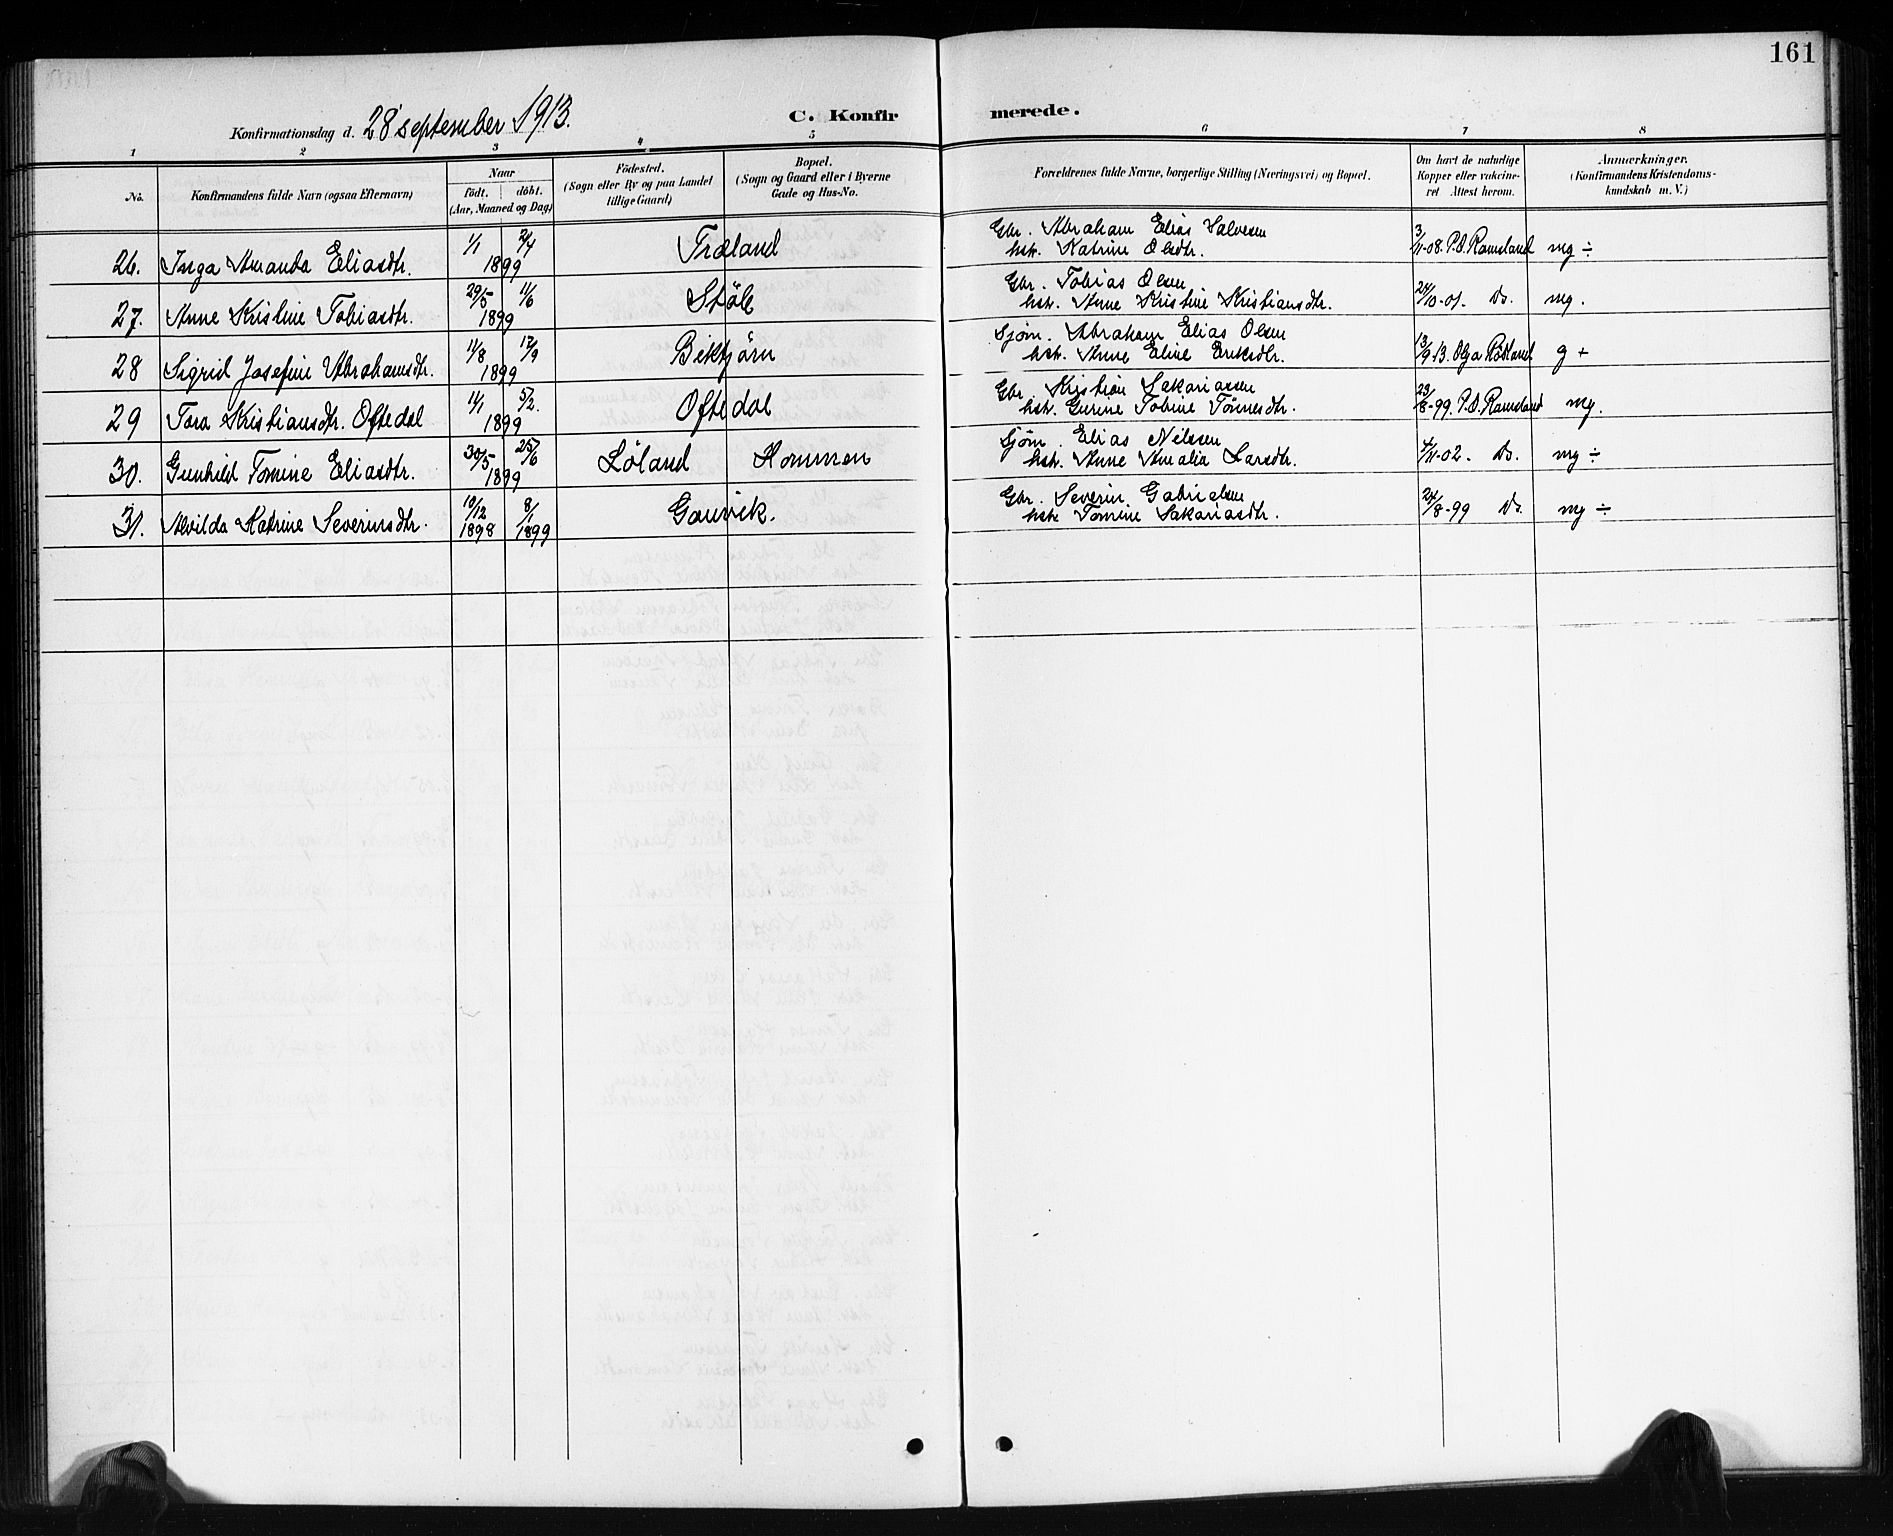 161
C. Konfirmerede.
Konfirmationsdag d. 28 september 1913.
1 2 3 4 5 6 7 8
No.
Konfirmandens fulde Navn (ogsaa Efternavn)
Naar
født. døbt.
(Aar, Maaned og Dag)
Fødested.
(Sogn eller By og paa Landet
tillige Gaard)
Bopæl.
(Sogn og Gaard eller i Byerne
Gade og Hus-No.
Forældrenes fulde Navne, borgerlige Stilling (Næringsvei) og Bopæl.
Om havt de naturlige
Kopper eller vaccine-
ret Attest herom.
Anmærkninger.
(Konfirmandens Kristendoms-
kundskab m. V.)
26. Inga Amanda Eliasdtr. 1/1 2/4 1899 Træland Gbr. Abraham Elias Salvesen
hst. Katrine Olsdtr. 3/11-08. P.D. Ramsland mg ÷
27. Anne Kristine Tobiasdtr. 29/5 11/6 1899 Støle Gbr. Tobias Olsen
hst. Anne Kristine Kristiansdtr. 24/10-01. Do. mg.
28 Sigrid Josefine Abrahamsdtr. 11/8 17/9 1899 Birkjørn Sjøm. Abraham Elias Olsen
hst. Anne Eline Eriksdtr. 13/9.13. Olga Rødland g +
29 Tora Kristiansdtr. Oftedal 14/1 5/2. 1899 Oftedal Gbr. Kristian Sakariassen
hst. Gurine Tobine Tønnesdtr. 23/8-99. P.D. Ramsland mg.
30. Gunhild Tomine Eliasdtr. 30/5 25/6 1899 Løland Hommen Sjøm. Elias Nilssen
hst. Anne Amalia Larsdtr. 4/11-02. Do. mg ÷
31. Alvilda Katrine Severinsdtr. 10/12 1898 8/1 1899 Gausvik. Gbr. Severin Gabrielsen
hst. Tomine Sakariasdtr. 24/8-99 Do. mg ÷